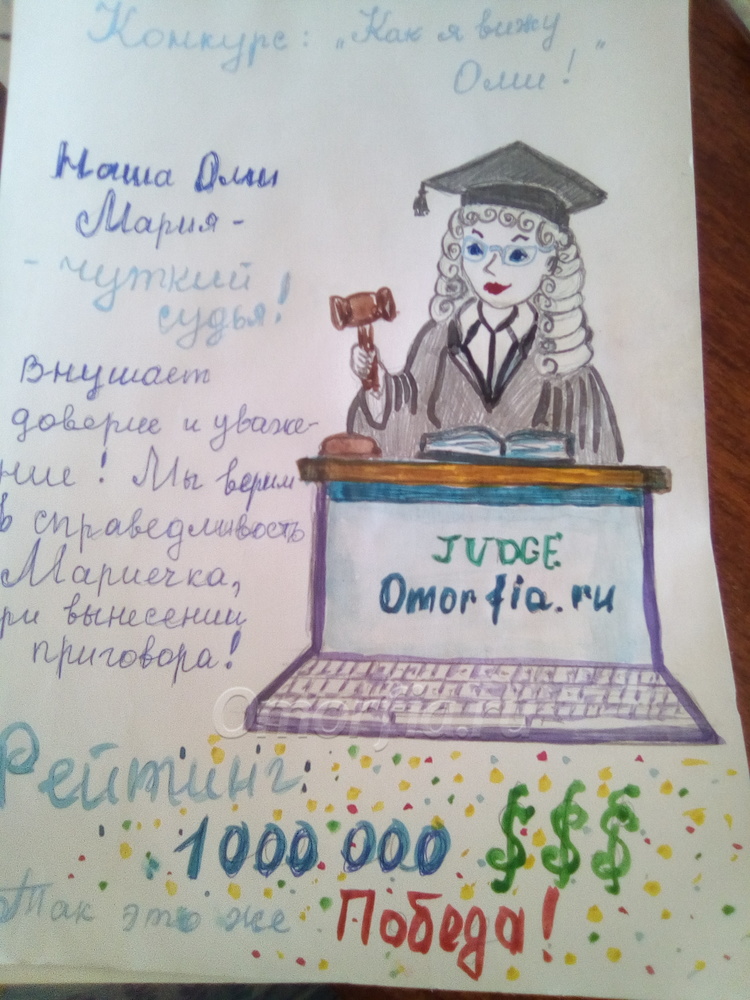 Конкурс: „Как я вижу
Оли!"
Наша Оли
Мария -
- чуткий
судья!
Внушает
доверие и уваже-
ние! Мы верим
в справедливость
Мариечка,
при вынесении
приговора!
JUDGE
Omorfia.ru
Omorfia.ru
Рейтинг:
1000 000 $$$
Так это же Победа!